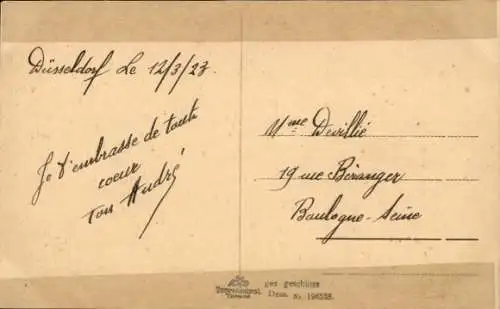 Düsseldorf Le 12/3/23.
Je t'embrasse de tout
coeur
Ton André
Mme Deville
19 rue Béranger
Boulogne-Seine
ges geschütze